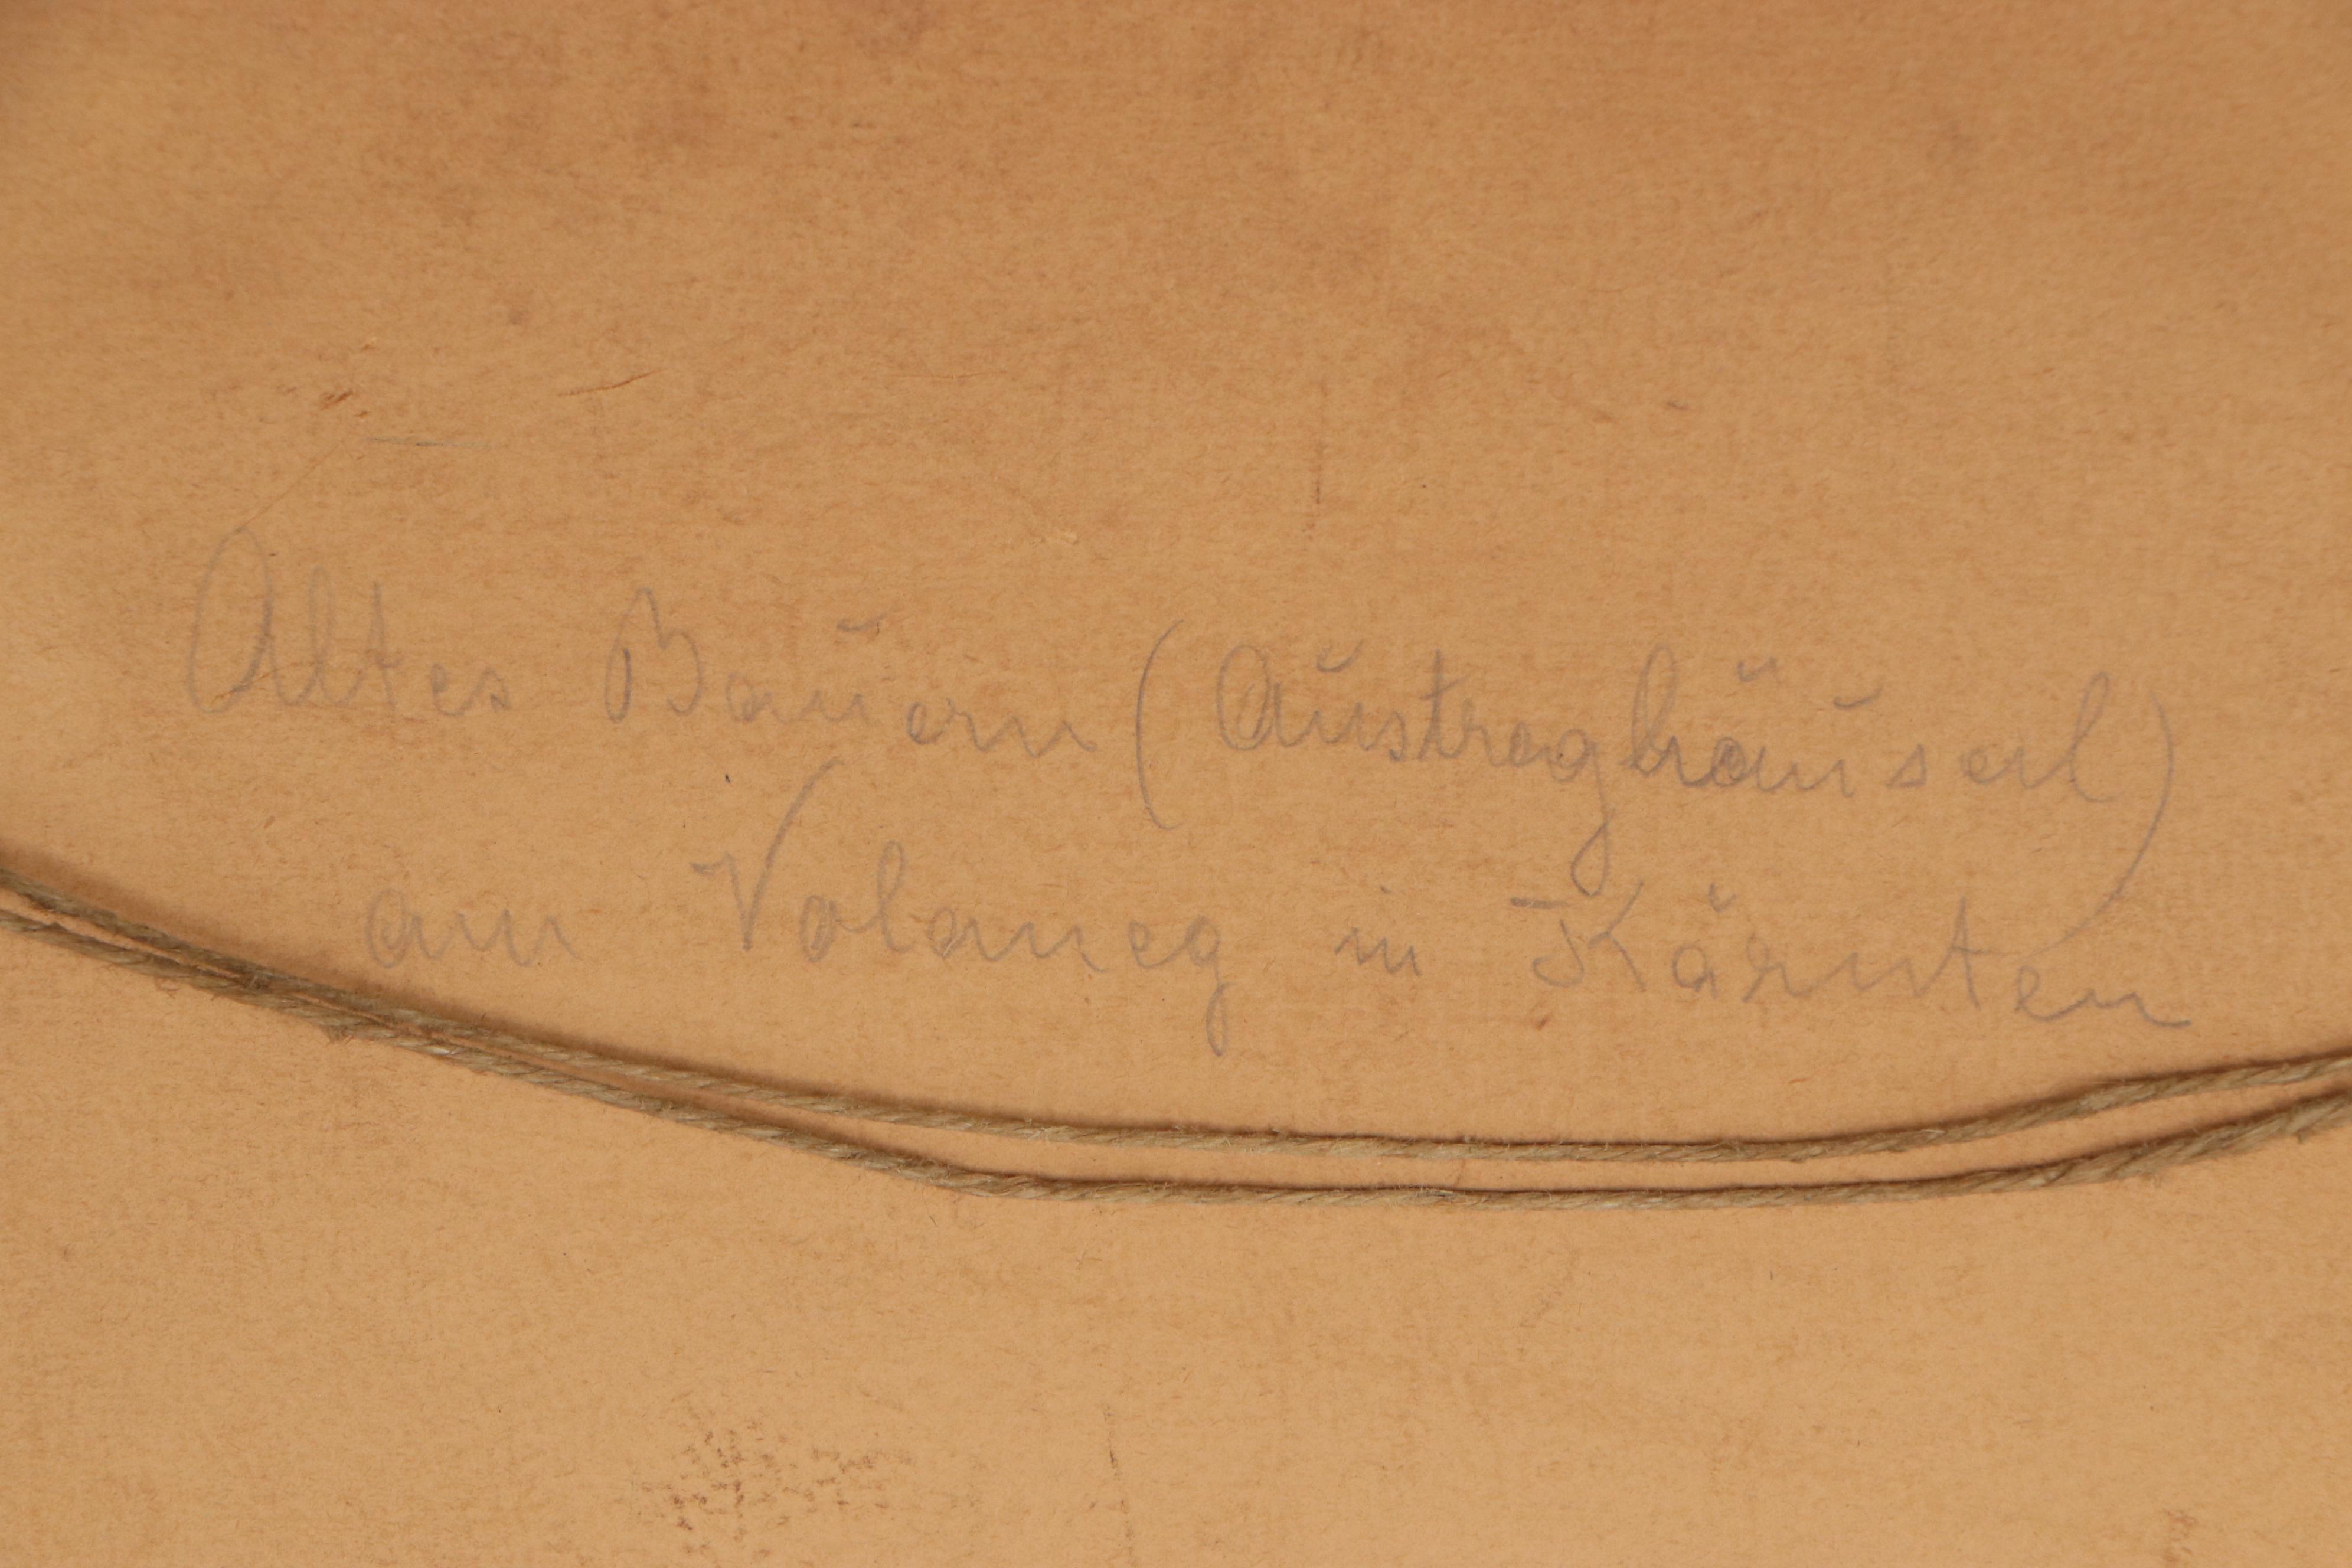 Altes Bauern (Austraghäuserl)
am Volaneg in Kärnten